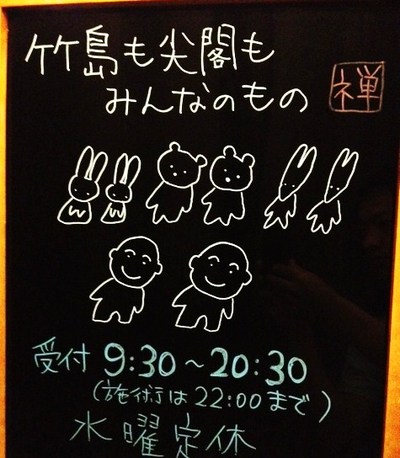 竹島も尖閣も
みんなのもの
禅
受付 9:30～20:30
(施術は22:00まで)
水曜定休